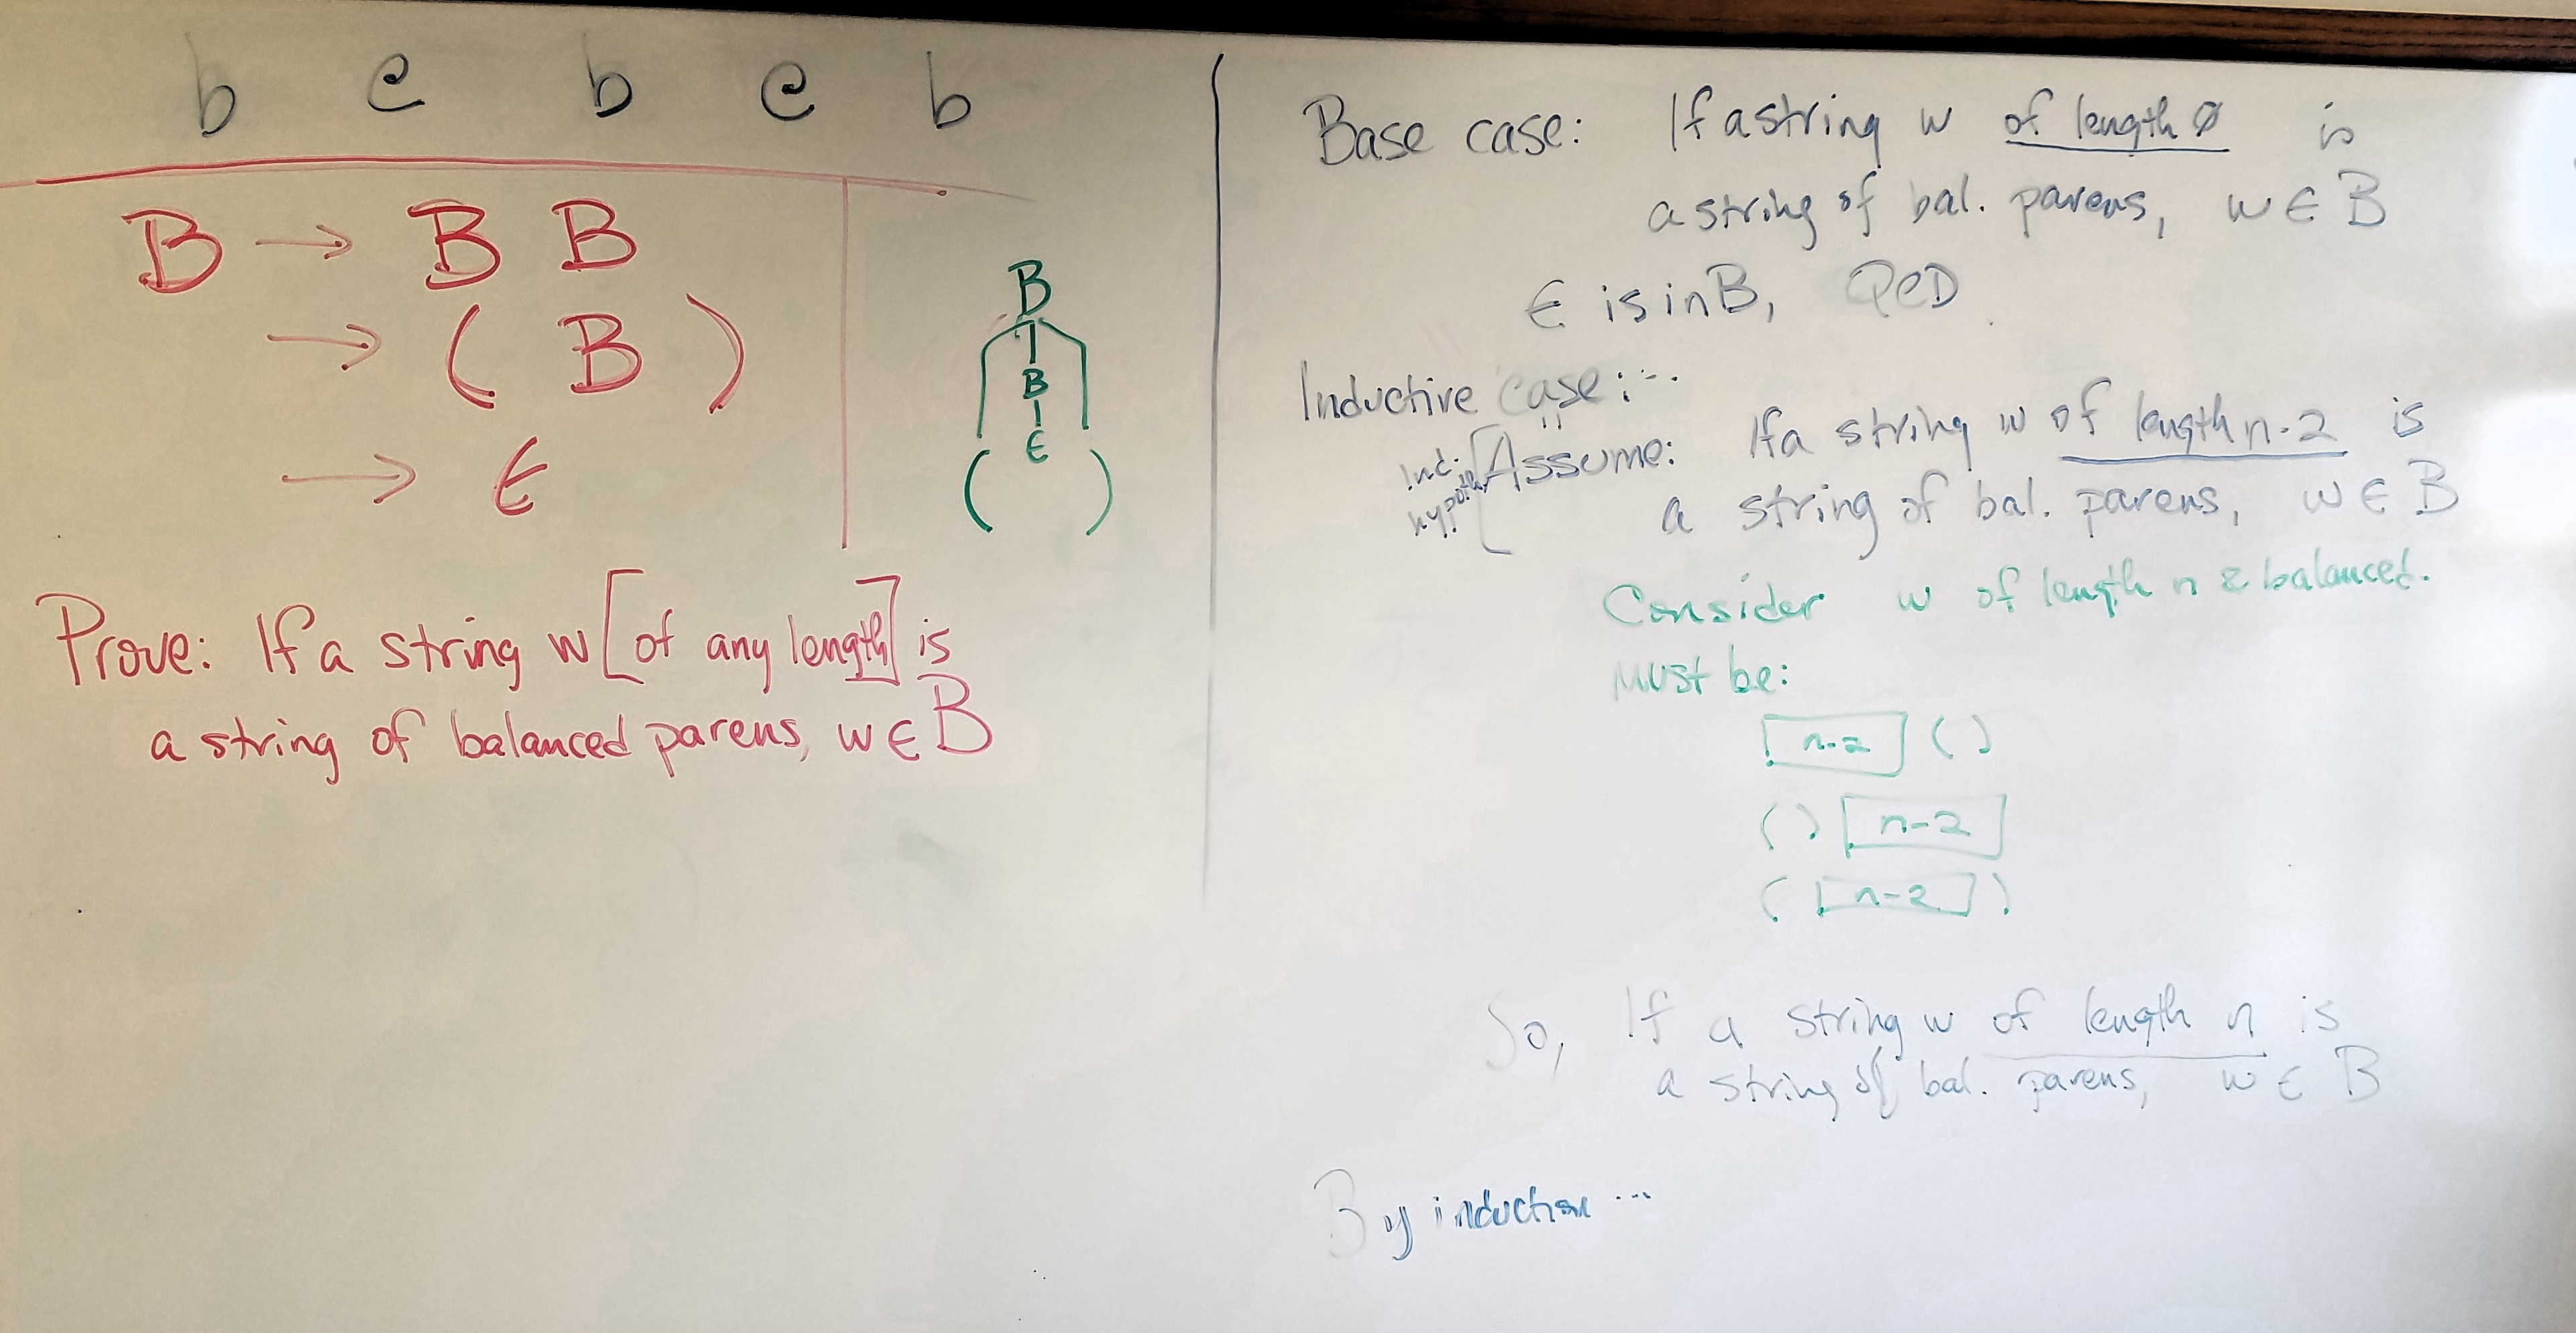 b e b e b
B → B B
→ ( B )
→ ϵ
B
B
ϵ
( )
Prove: If a string w [of any length] is
a string of balanced parens, w ∈ B
Base case: If a string w of length 0 is
a string of bal. parens, w ∈ B
ϵ is in B, QED.
Inductive case:...
Ind. hypoth. [Assume: If a string w of length n-2 is
a string of bal. parens, w ∈ B
Consider w of length n & balanced.
Must be:
[n-2] ( )
( ) [n-2]
( [n-2] )
So, If a string w of length n is
a string of bal. parens, w ∈ B
By induction ...